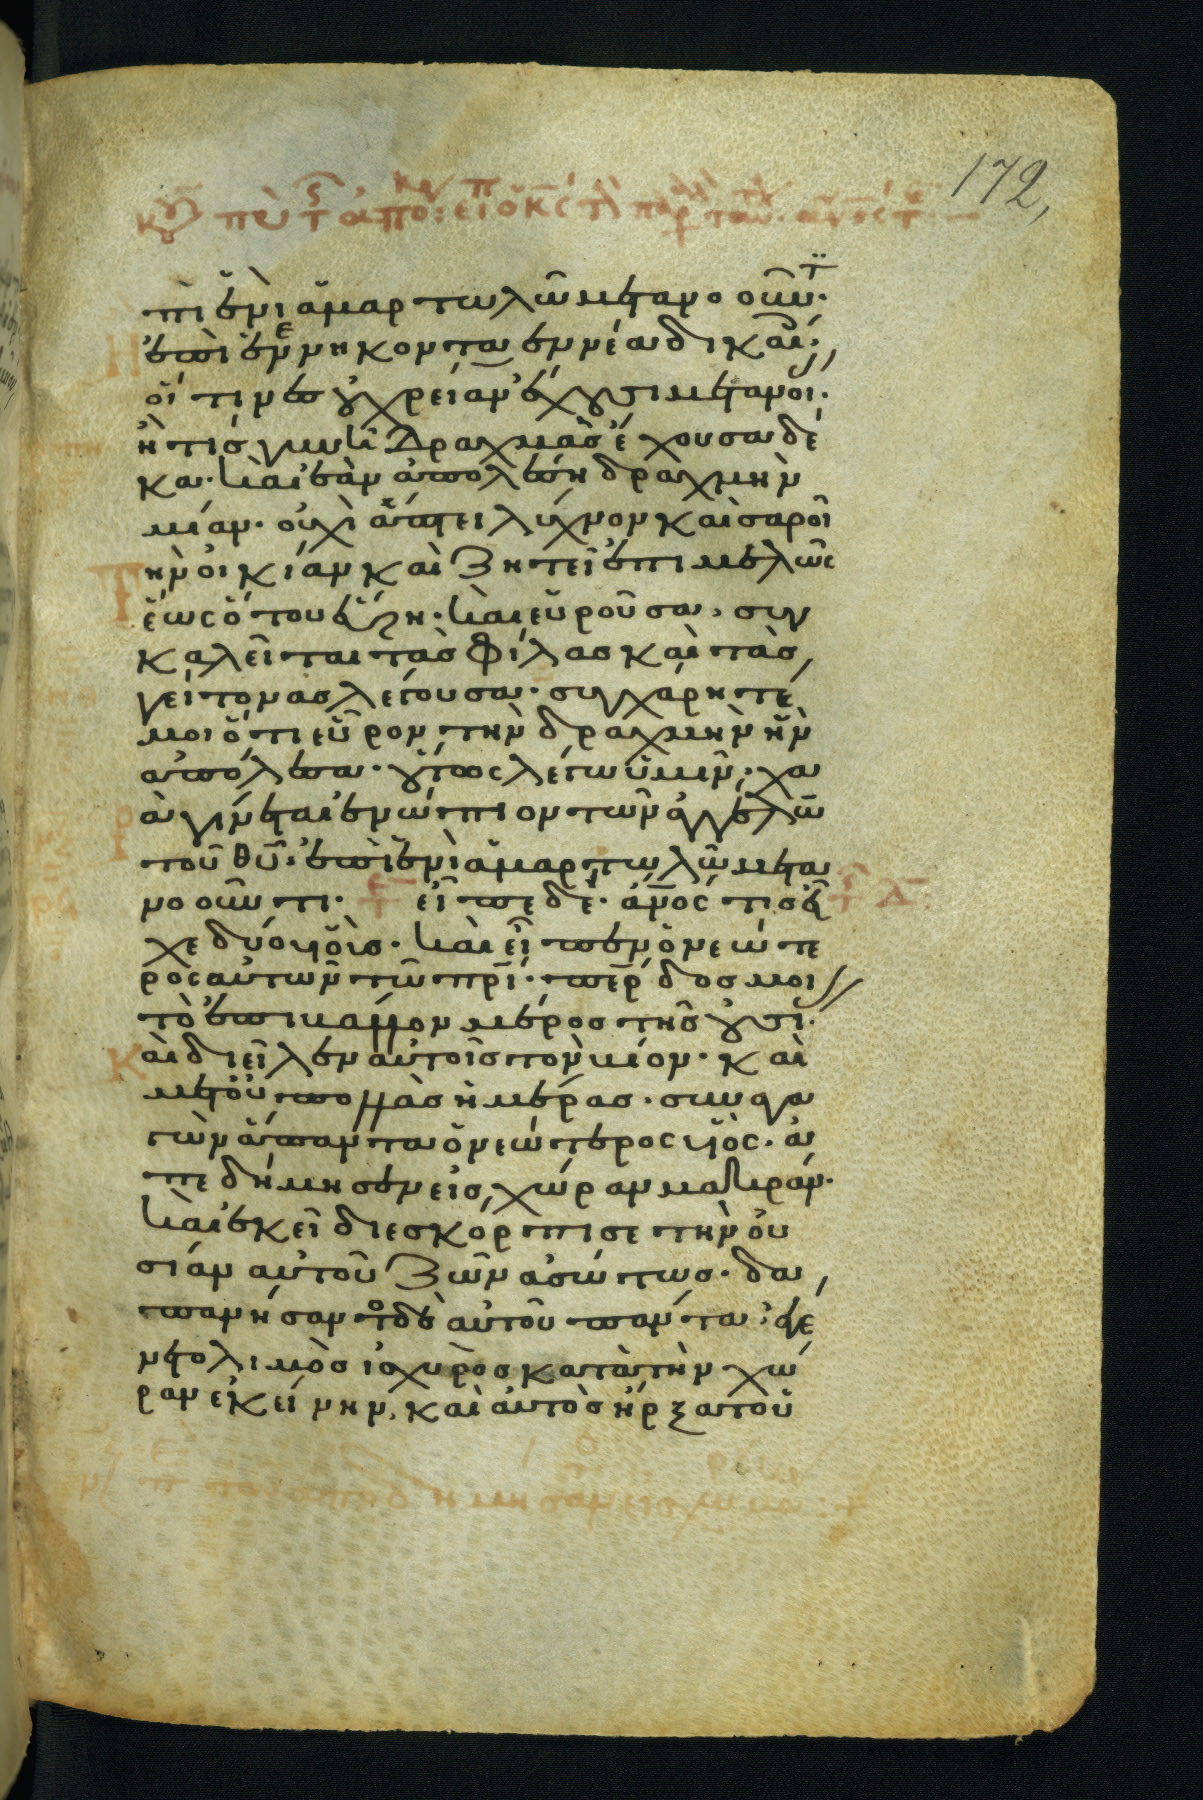 172,
πὶ ἑνὶ ἁμαρτωλῶ μετανοοῦντι·
ἐπὶ ἐνενηκονταεννέα δικαίοις,
οἵτινες οὐ χρείαν ἔχουσι μετανοί·
ἢ τίς γυνὴ δραχμὰς ἔχουσα δέ
κα· καὶ ἐὰν ἀπολέση δραχμὴν
μίαν· οὐχὶ ἅπτει λύχνον καὶ σαροῖ
τὴν οἰκίαν καὶ ζητεῖ ἐπιμελῶς
ἕως ὅτου εὕρη· καὶ εὑροῦσα, συγ
καλεῖται τὰς φίλας καὶ τὰς
γείτονας λέγουσα· συγχάρητέ
μοι ὅτι εὗρον τὴν δραχμὴν ἣν
ἀπώλεσα· οὕτως λέγω ὑμῖν, χα
ρὰ γίνεται ἐνώπιον τῶν ἀγγέλων
τοῦ θῦ· ἐπὶ ἑνὶ ἁμαρτωλῶ μετα
νοοῦντι· εἶπε δέ· ἀνός τις εἶ
χε δύο υἱούς· καὶ εἶπεν ὁ νεώτε
ρος αὐτῶν τῶ πρι· περ δός μοι
τὸ ἐπιβάλλον μέρος τῆς οὐσίας·
καὶ διεῖλεν αὐτοῖς τὸν βίον· καὶ
μετ' οὐ πολλὰς ἡμέρας· συναγα
γὼν ἅπαντα ὁ νεώτερος υἱός· ἀ
πεδήμησεν εἰς χώραν μακράν·
καὶ ἐκεῖ διεσκόρπισε τὴν οὐ
σίαν αὐτοῦ ζῶν ἀσώτως· δα
πανήσαντος δὲ αὐτοῦ πάντα· ἐγέ
νετο λιμὸς ἰσχυρὸς κατὰ τὴν χώ
ραν ἐκείνην, καὶ αὐτὸς ἤρξατο ὑ